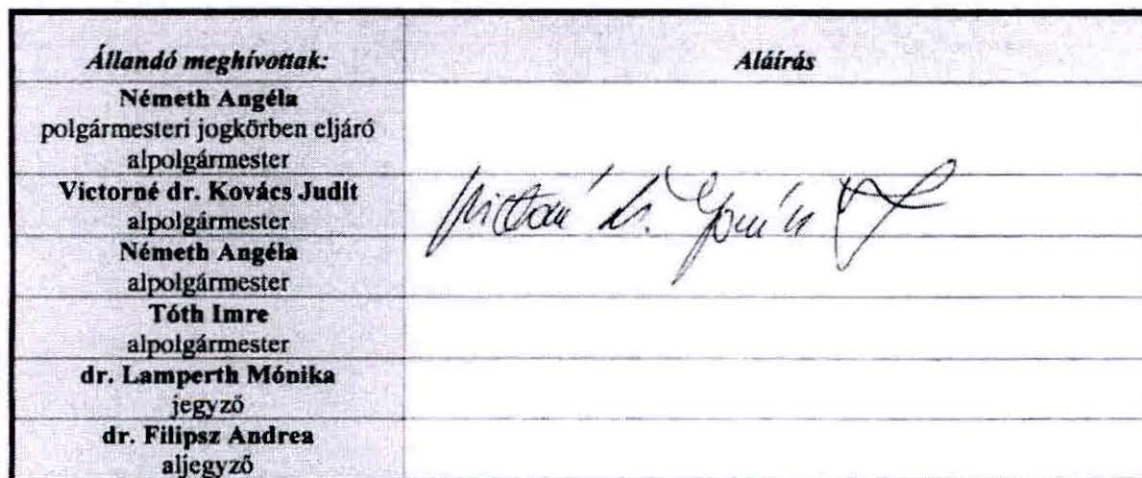 Állandó meghívottak: Aláírás
Németh Angéla
polgármesteri jogkörben eljáró
alpolgármester
Victorné dr. Kovács Judit
alpolgármester
Németh Angéla
alpolgármester
Tóth Imre
alpolgármester
dr. Lamperth Mónika
jegyző
dr. Filipsz Andrea
aljegyző